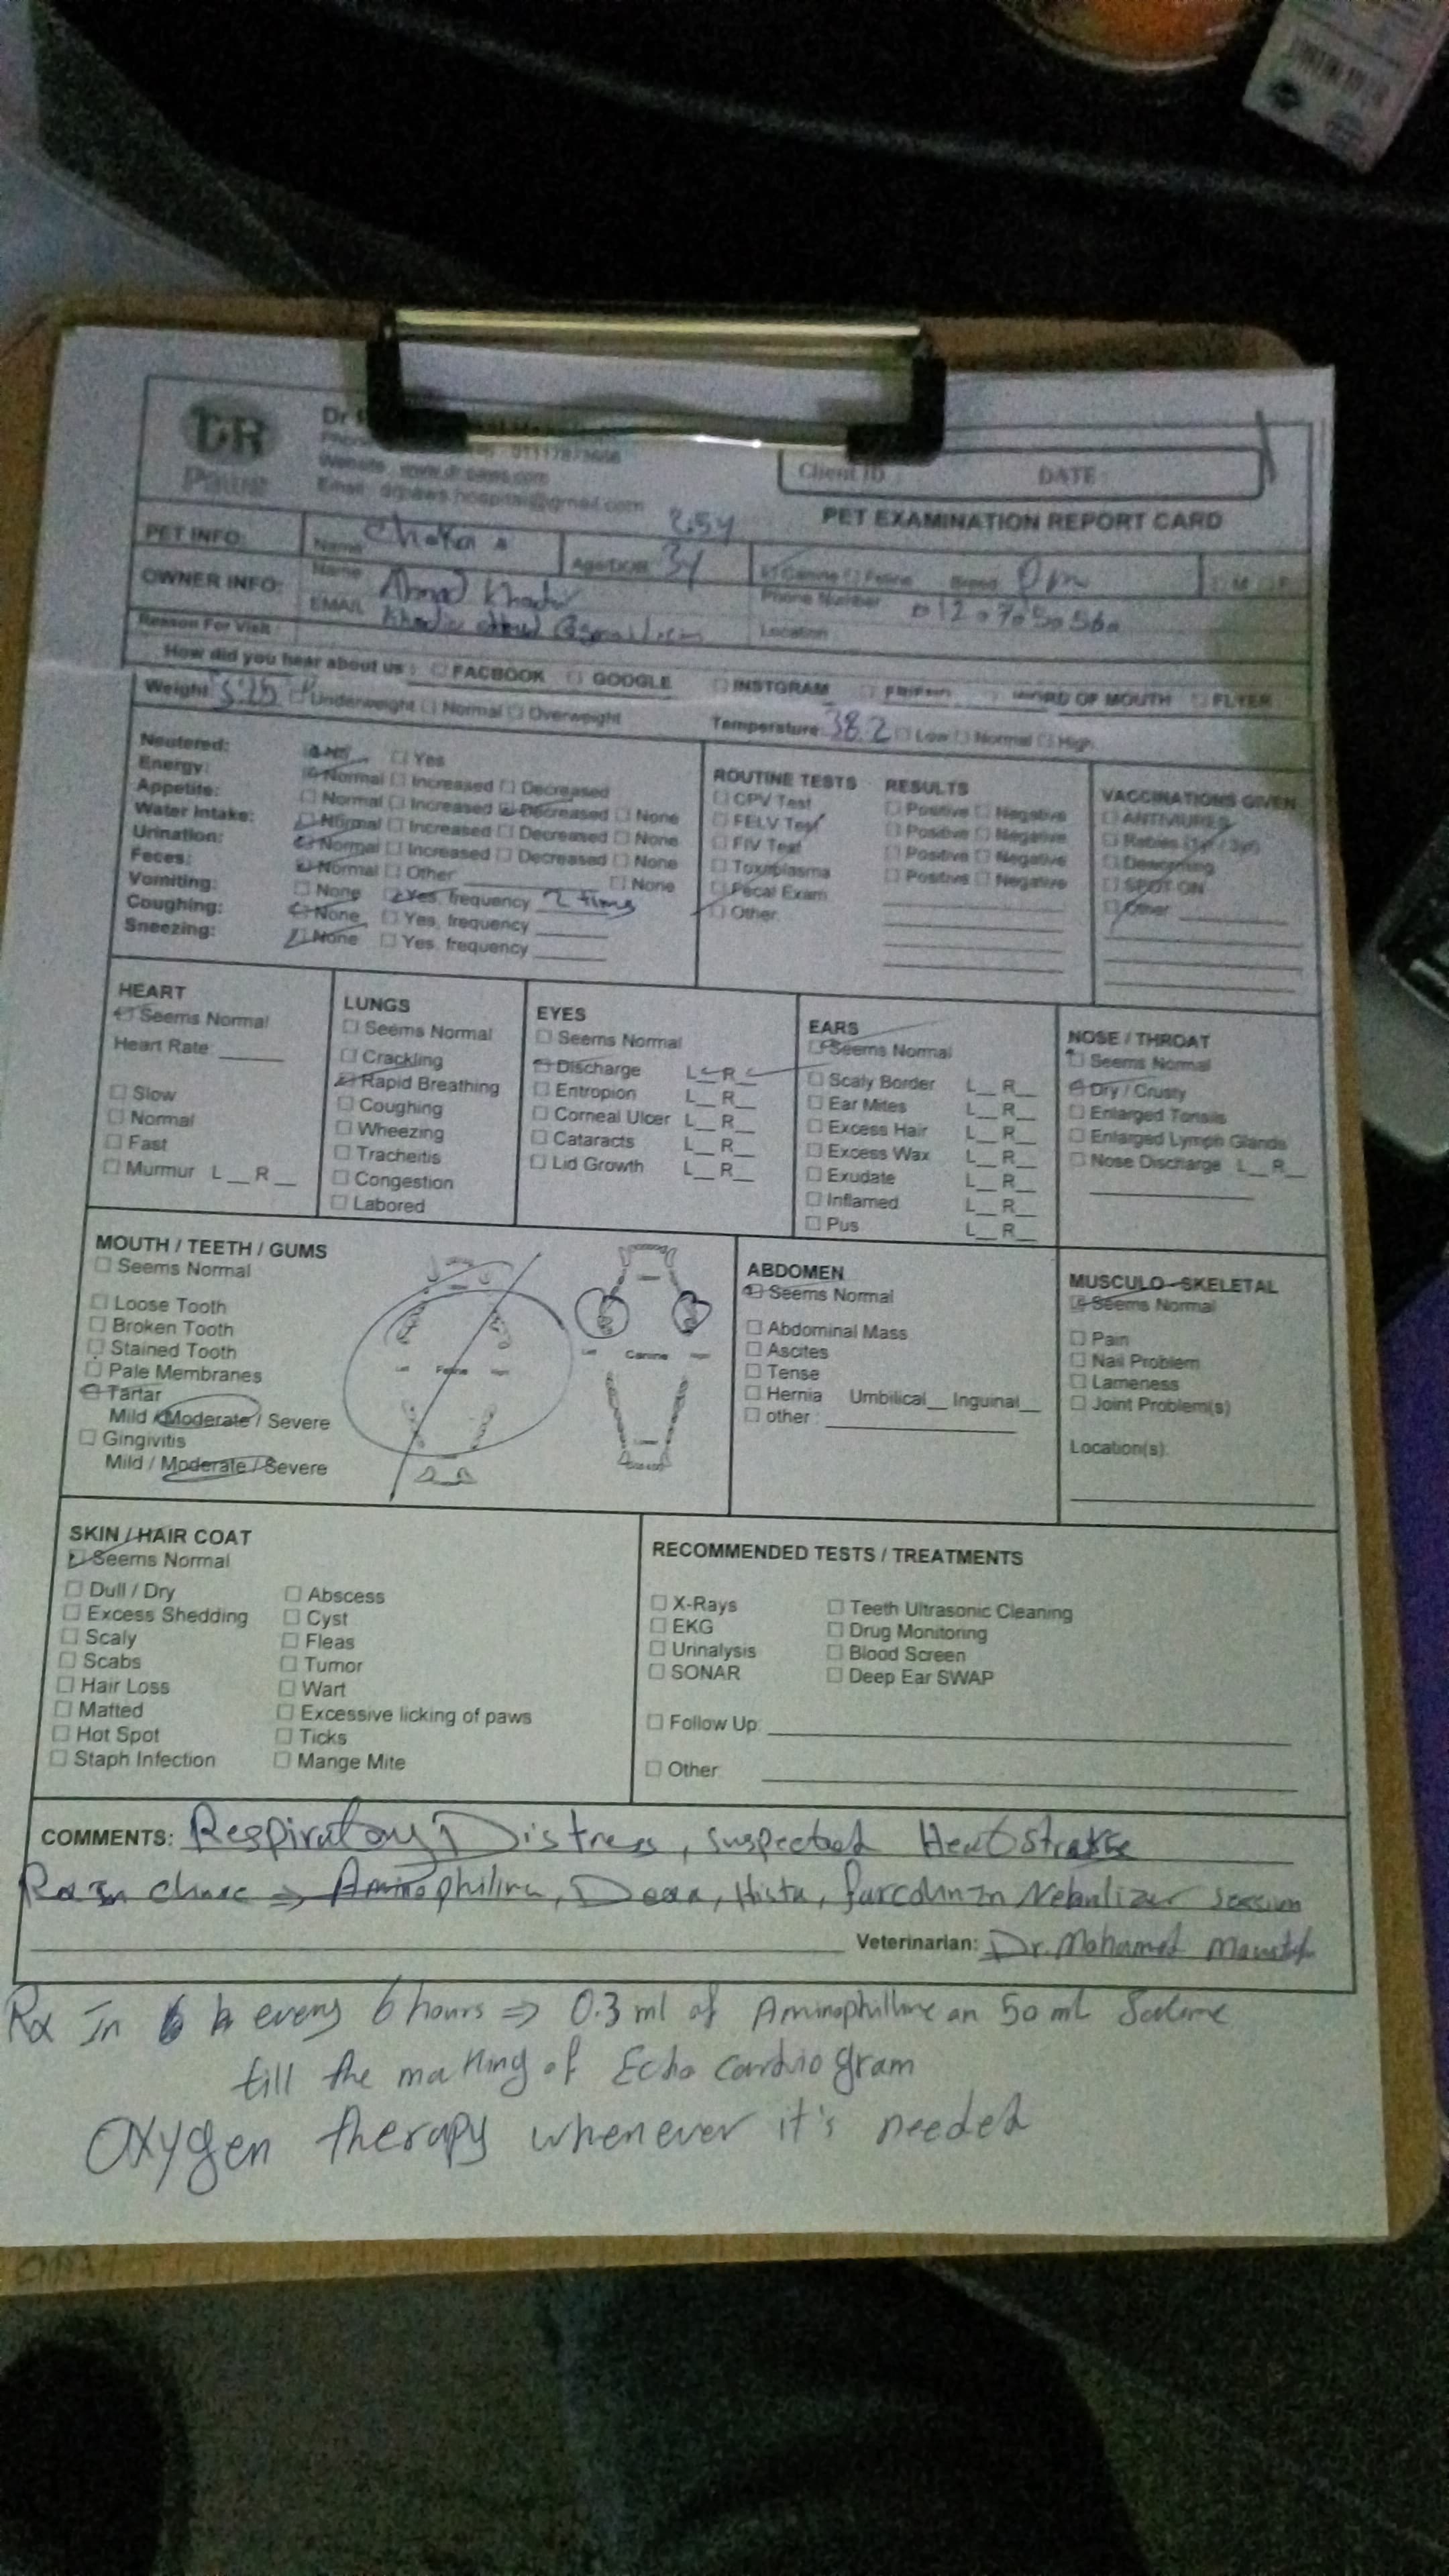 DR
Dr
01117873666
Website : www.dr-paws.com
Email : drpaws.hospital@gmail.com
Client ID : DATE :
PET EXAMINATION REPORT CARD
PET INFO: Name Age/DOB: 3y 2.5y Canine Feline Breed M F
OWNER INFO: Name Ahmed Khodir Phone Number
EMAIL Location
Reason For Visit :
How did you hear about us : FACBOOK GOOGLE INSTGRAM FRIEND WORD OF MOUTH FLYER
Weight: Underweight Normal Overweight Temperature: 38.2 Low Normal High
Neutered: No Yes
Energy: Normal Increased Decreased
Appetite: Normal Increased Decreased None
Water Intake: Normal Increased Decreased None
Urination: Normal Increased Decreased None
Feces: Normal Other None
Vomiting: None Yes, frequency 2 times
Coughing: None Yes, frequency
Sneezing: None Yes, frequency
ROUTINE TESTS - RESULTS
CPV Test Positive Negative
FELV Test Positive Negative
FIV Test Positive Negative
Toxoplasma Positive Negative
Fecal Exam
Other
VACCINATIONS GIVEN
Deworming
SPOT ON
Other
HEART
Seems Normal
Heart Rate
Slow
Normal
Fast
Murmur L R
LUNGS
Seems Normal
Crackling
Rapid Breathing
Coughing
Wheezing
Tracheitis
Congestion
Labored
EYES
Seems Normal
Discharge L R
Entropion L R
Corneal Ulcer L R
Cataracts L R
Lid Growth L R
EARS
Seems Normal
Scaly Border L R
Ear Mites L R
Excess Hair L R
Excess Wax L R
Exudate L R
Inflamed L R
Pus L R
NOSE / THROAT
Seems Normal
Dry / Crusty
Enlarged Tonsils
Enlarged Lymph Glands
Nose Discharge L R
MOUTH / TEETH / GUMS
Seems Normal
Loose Tooth
Broken Tooth
Stained Tooth
Pale Membranes
Tartar
Mild / Moderate / Severe
Gingivitis
Mild / Moderate / Severe
Left Feline Right
Left Canine Right
ABDOMEN
Seems Normal
Abdominal Mass
Ascites
Tense
Hernia Umbilical Inguinal
other :
MUSCULO-SKELETAL
Seems Normal
Pain
Nail Problem
Lameness
Joint Problem(s)
Location(s):
SKIN / HAIR COAT
Seems Normal
Dull / Dry
Excess Shedding
Scaly
Scabs
Hair Loss
Matted
Hot Spot
Staph Infection
Abscess
Cyst
Fleas
Tumor
Wart
Excessive licking of paws
Ticks
Mange Mite
RECOMMENDED TESTS / TREATMENTS
X-Rays
EKG
Urinalysis
SONAR
Teeth Ultrasonic Cleaning
Drug Monitoring
Blood Screen
Deep Ear SWAP
Follow Up:
Other
COMMENTS: Respiratory Distress, suspected Heat Stroke
Rx In clinic ⇒ Aminophiline, Dexa, Hista, Nebulizer session
Veterinarian: Dr. Mohamed
Rx In every 6 hours ⇒ 0.3 ml of Aminophilline on 50 ml Saline
till the making of Echo cardiogram
Oxygen therapy whenever it's needed